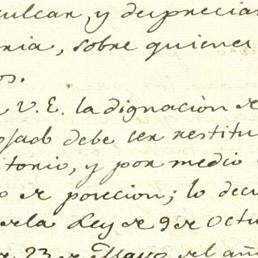 ulcar, y despreciar
oria, sobre quienes
os.
V.E. la dignación de
debe ser restitu
itorio, y por medio
o de posecion; lo decr
de la Ley de 9 de Octu
de 23 de Mayo del añ